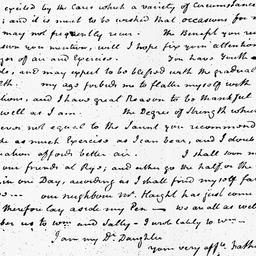 excited by the Cares which a variety of Circumstance
; and it is much to be wished that occasions for
may not frequently recur. The Benefit you re
you mention, will I hope fix your attention
of air and Exercise. You have Youth
and may expect to be blessed with the gradual
my age forbids me to flatter myself with
and I have great Reason to be thankful
well as I am. The degree of Strength whic
ever not equal to the Jaunt you recommend
as much Exercise as I can bear, and I woul
affords better air. I shall
our friends at Rye; and either go the half, or the
in one Day, according as I shall find myself fa
our neighbour Mr. Haight has just come
therefore lay aside my Pen — we are all as well
ber us to Wm and Sally — I wrote lately to Wm —
I am my Dr. Daughter
your very affte. Fathe